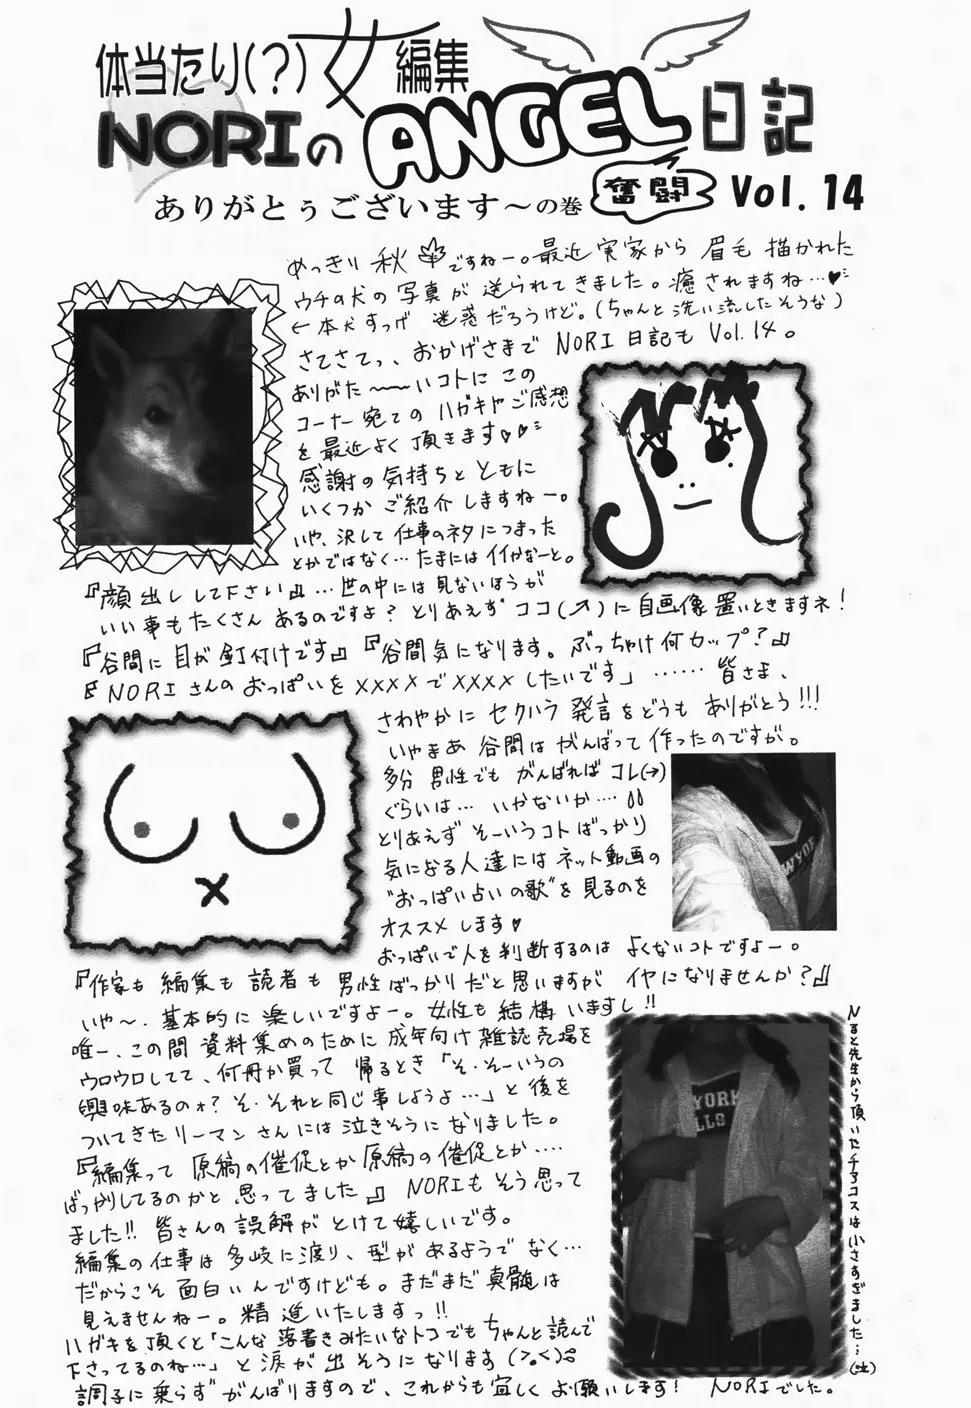 体当たり(?)女編集
NORIのANGEL日記
ありがとぅございます〜の巻 奮闘 Vol. 14
めっきり 秋ですねー。最近 実家から 眉毛 描かれた
ウチの犬の 写真が 送られてきました。癒されますね…♥
←本犬すっげ 迷惑だろうけど。(ちゃんと洗い流したそうな)
さてさてっ、おかげさまで NORI 日記も Vol.14。
ありがた〜〜いコトに この
コーナー宛ての ハガキやご感想
を最近よく 頂きます♡♡
感謝の気持ちと ともに
いくつか ご紹介 しますねー。
いや、決して 仕事のネタにつまった
とかではなく…たまには イイかなーと。
『顔出し して下さい』…世の中には 見ないほうが
いい事も たくさん あるのですよ? とりあえず ココ(↗)に 自画像 置いときますネ!
『谷間に 目が 釘付けです』『谷間気になります。ぶっちゃけ何カップ?』
『NORIさんの おっぱいを ××××で××××したいです」……皆さま、
さわやかに セクハラ 発言を どうも ありがとう!!!
いやまあ 谷間は がんばって 作ったのですが。
多分 男性でも がんばれば コレ(→)
ぐらいは… いかないか…
とりあえず そーいうコト ばっかり
気になる人達には ネット動画の
"おっぱい占いの歌"を 見るのを
オススメ します♥
おっぱいで人を 判断するのは よくないコトですよー。
『作家も 編集も 読者も 男性ばっかりだと思いますが イヤになりませんか?』
いや〜、基本的に 楽しいですよー。女性も 結構 いますし!!
唯一、この間 資料集めのために 成年向け 雑誌売場を
ウロウロしてて、何冊か買って 帰るとき「そ・そーいうの
興味あるのォ? そ・それと同じ事しようよ…」と 後を
ついてきた リーマン さんには 泣きそうに なりました。
『編集って 原稿の催促とか 原稿の催促とか‥‥
ばっかりしてるのかと 思ってました』 NORIも そう思って
ました!! 皆さんの 誤解が とけて 嬉しいです。
編集の仕事は 多岐に渡り、型が あるようで なく…
だからこそ 面白いんですけども。まだまだ 真髄は
見えませんねー。精進いたしますっ!!
ハガキを 頂くと「こんな 落書きみたいなトコでも ちゃんと読んで
下さってるのね…」と 涙が 出そうに なります(>。<)
調子に 乗らず がんばりますので、これからも 宜しく お願いします! NORIでした。
NYOR
YORK
LLS
Nると先生から頂いたチアコスは小さすぎました…(泣)